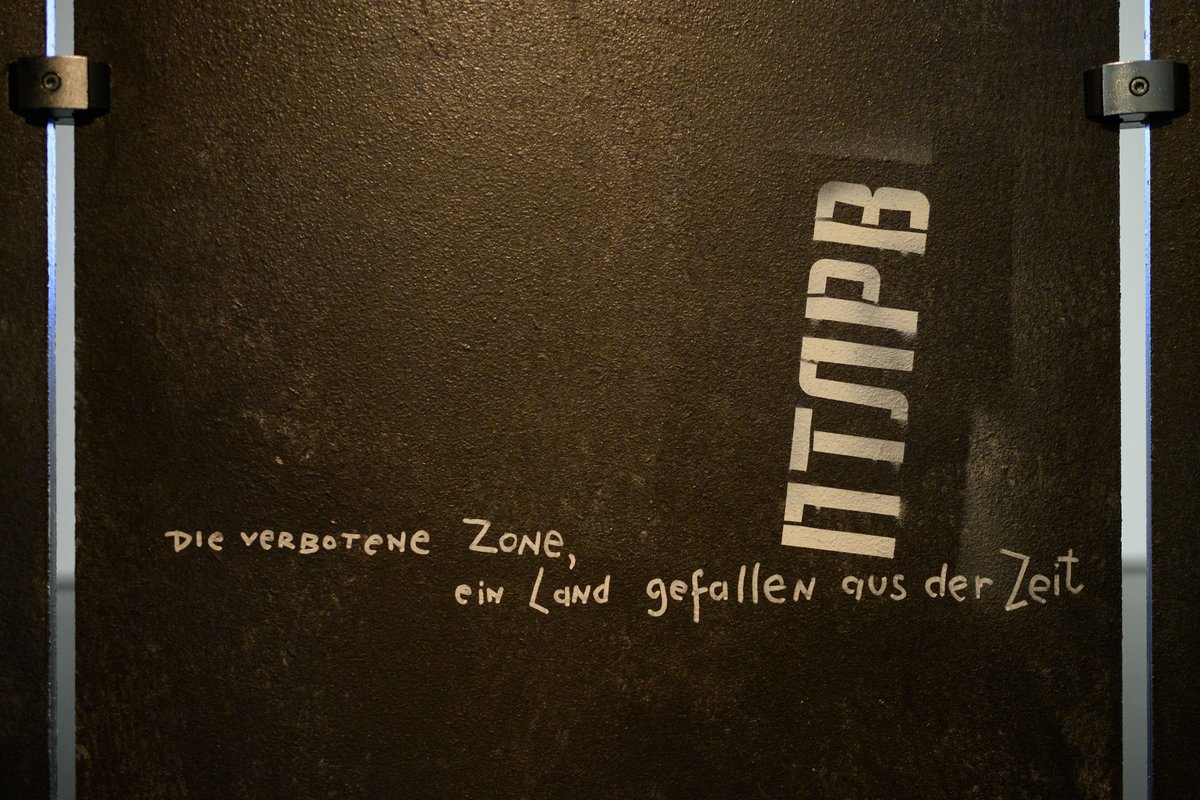 ПТЛРВ
DIE VERBOTENE ZONE,
ein Land gefallen aus der Zeit